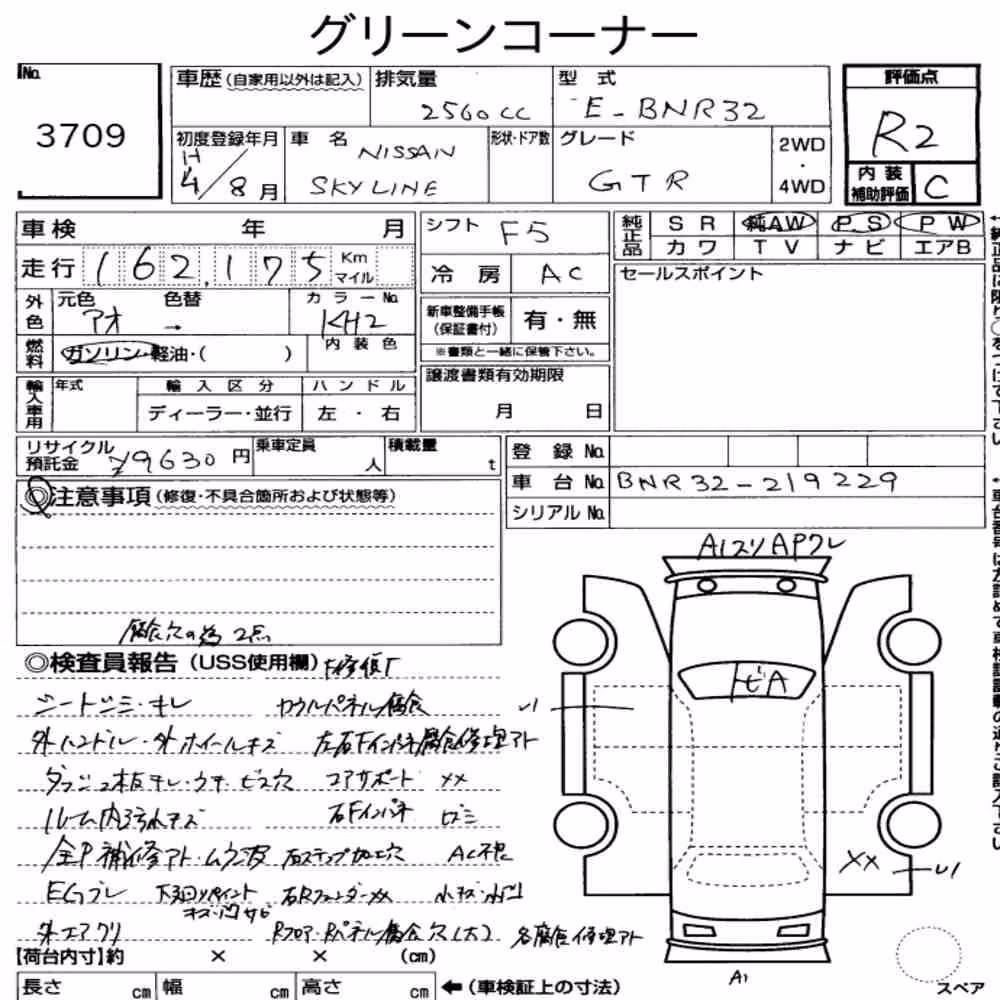 グリーンコーナー
No.
3709
車歴(自家用以外は記入)
排気量
2560cc
型 式
E-BNR32
評価点
R2
内装
補助評価
C
初度登録年月
H
4/8月
車 名
NISSAN
SKYLINE
形状・ドア数
グレード
GTR
2WD
・
4WD
車検 年 月
走行 162,175 Km
マイル
シフト F5
冷 房 AC
純正品
SR 純AW PS PW
カワ TV ナビ エアB
セールスポイント
外色
元色 色替
アオ →
カラーNo.
KH2
新車整備手帳
(保証書付)
有・無
※書類と一緒に保管下さい。
燃料
ガソリン・軽油・( )
内 装 色
輸入車用
年式
輸 入 区 分
ディーラー・並行
ハ ン ド ル
左 ・ 右
譲渡書類有効期限
月 日
リサイクル
預託金 ¥9630円
乗車定員
人
積載量
t
登 録 No.
車 台 No. BNR32-219229
シリアル No.
◎注意事項(修復・不具合箇所および状態等)
腐食穴の為 2点
◎検査員報告(USS使用欄)
シートシミ・キレ
カウルパネル腐食
外ハンドル・外ホイールキズ
左右Fインパネ腐食修理アト
ダッシュ板キレ・ウキ ビス穴
コアサポート XX
ルーム内汚れキズ
右Fインパネ
全P補修アト・ムラ・波
右ステップ加工穴
AC不良
EGブレ
下回りペイント
右RフェンダーXX
外エアクリ
Rフロア・Rパネル腐食穴(大)
各腐食修理アト
A1スリ APワレ
トビA
XX
A1
スペア
【荷台内寸】約 × × (cm)
長さ cm 幅 cm 高さ cm ←(車検証上の寸法)